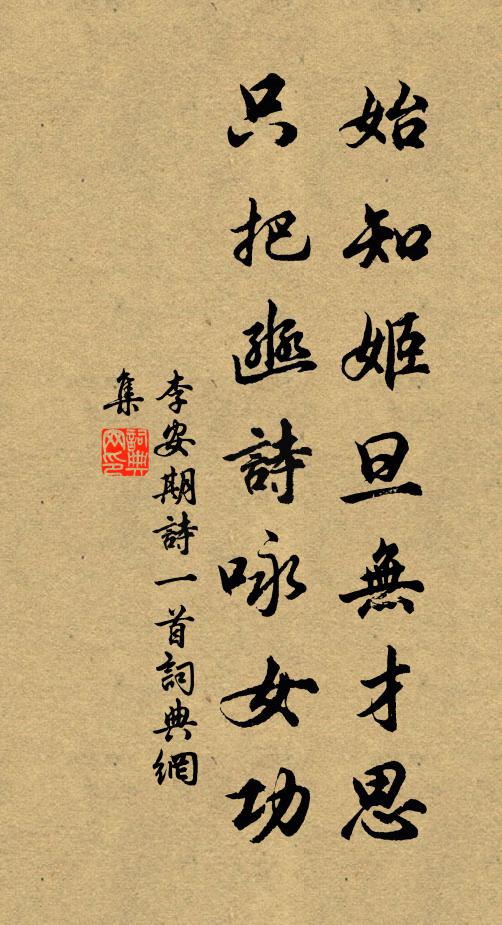 始知姬旦無才思
只把豳詩咏女功
李安期詩一首詞典網
集
詞典
网印